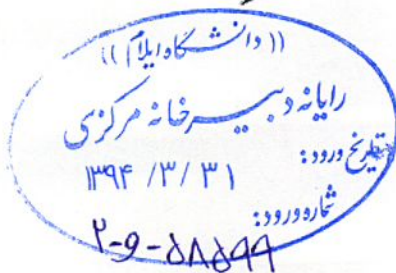 (( دانشگاه ایلام ))
رایانه دبیرخانه مرکزی
تاریخ ورود :
۱۳۹۴ /۳/ ۳۱
شماره ورود :
۲-۹-۵۸۵۹۹